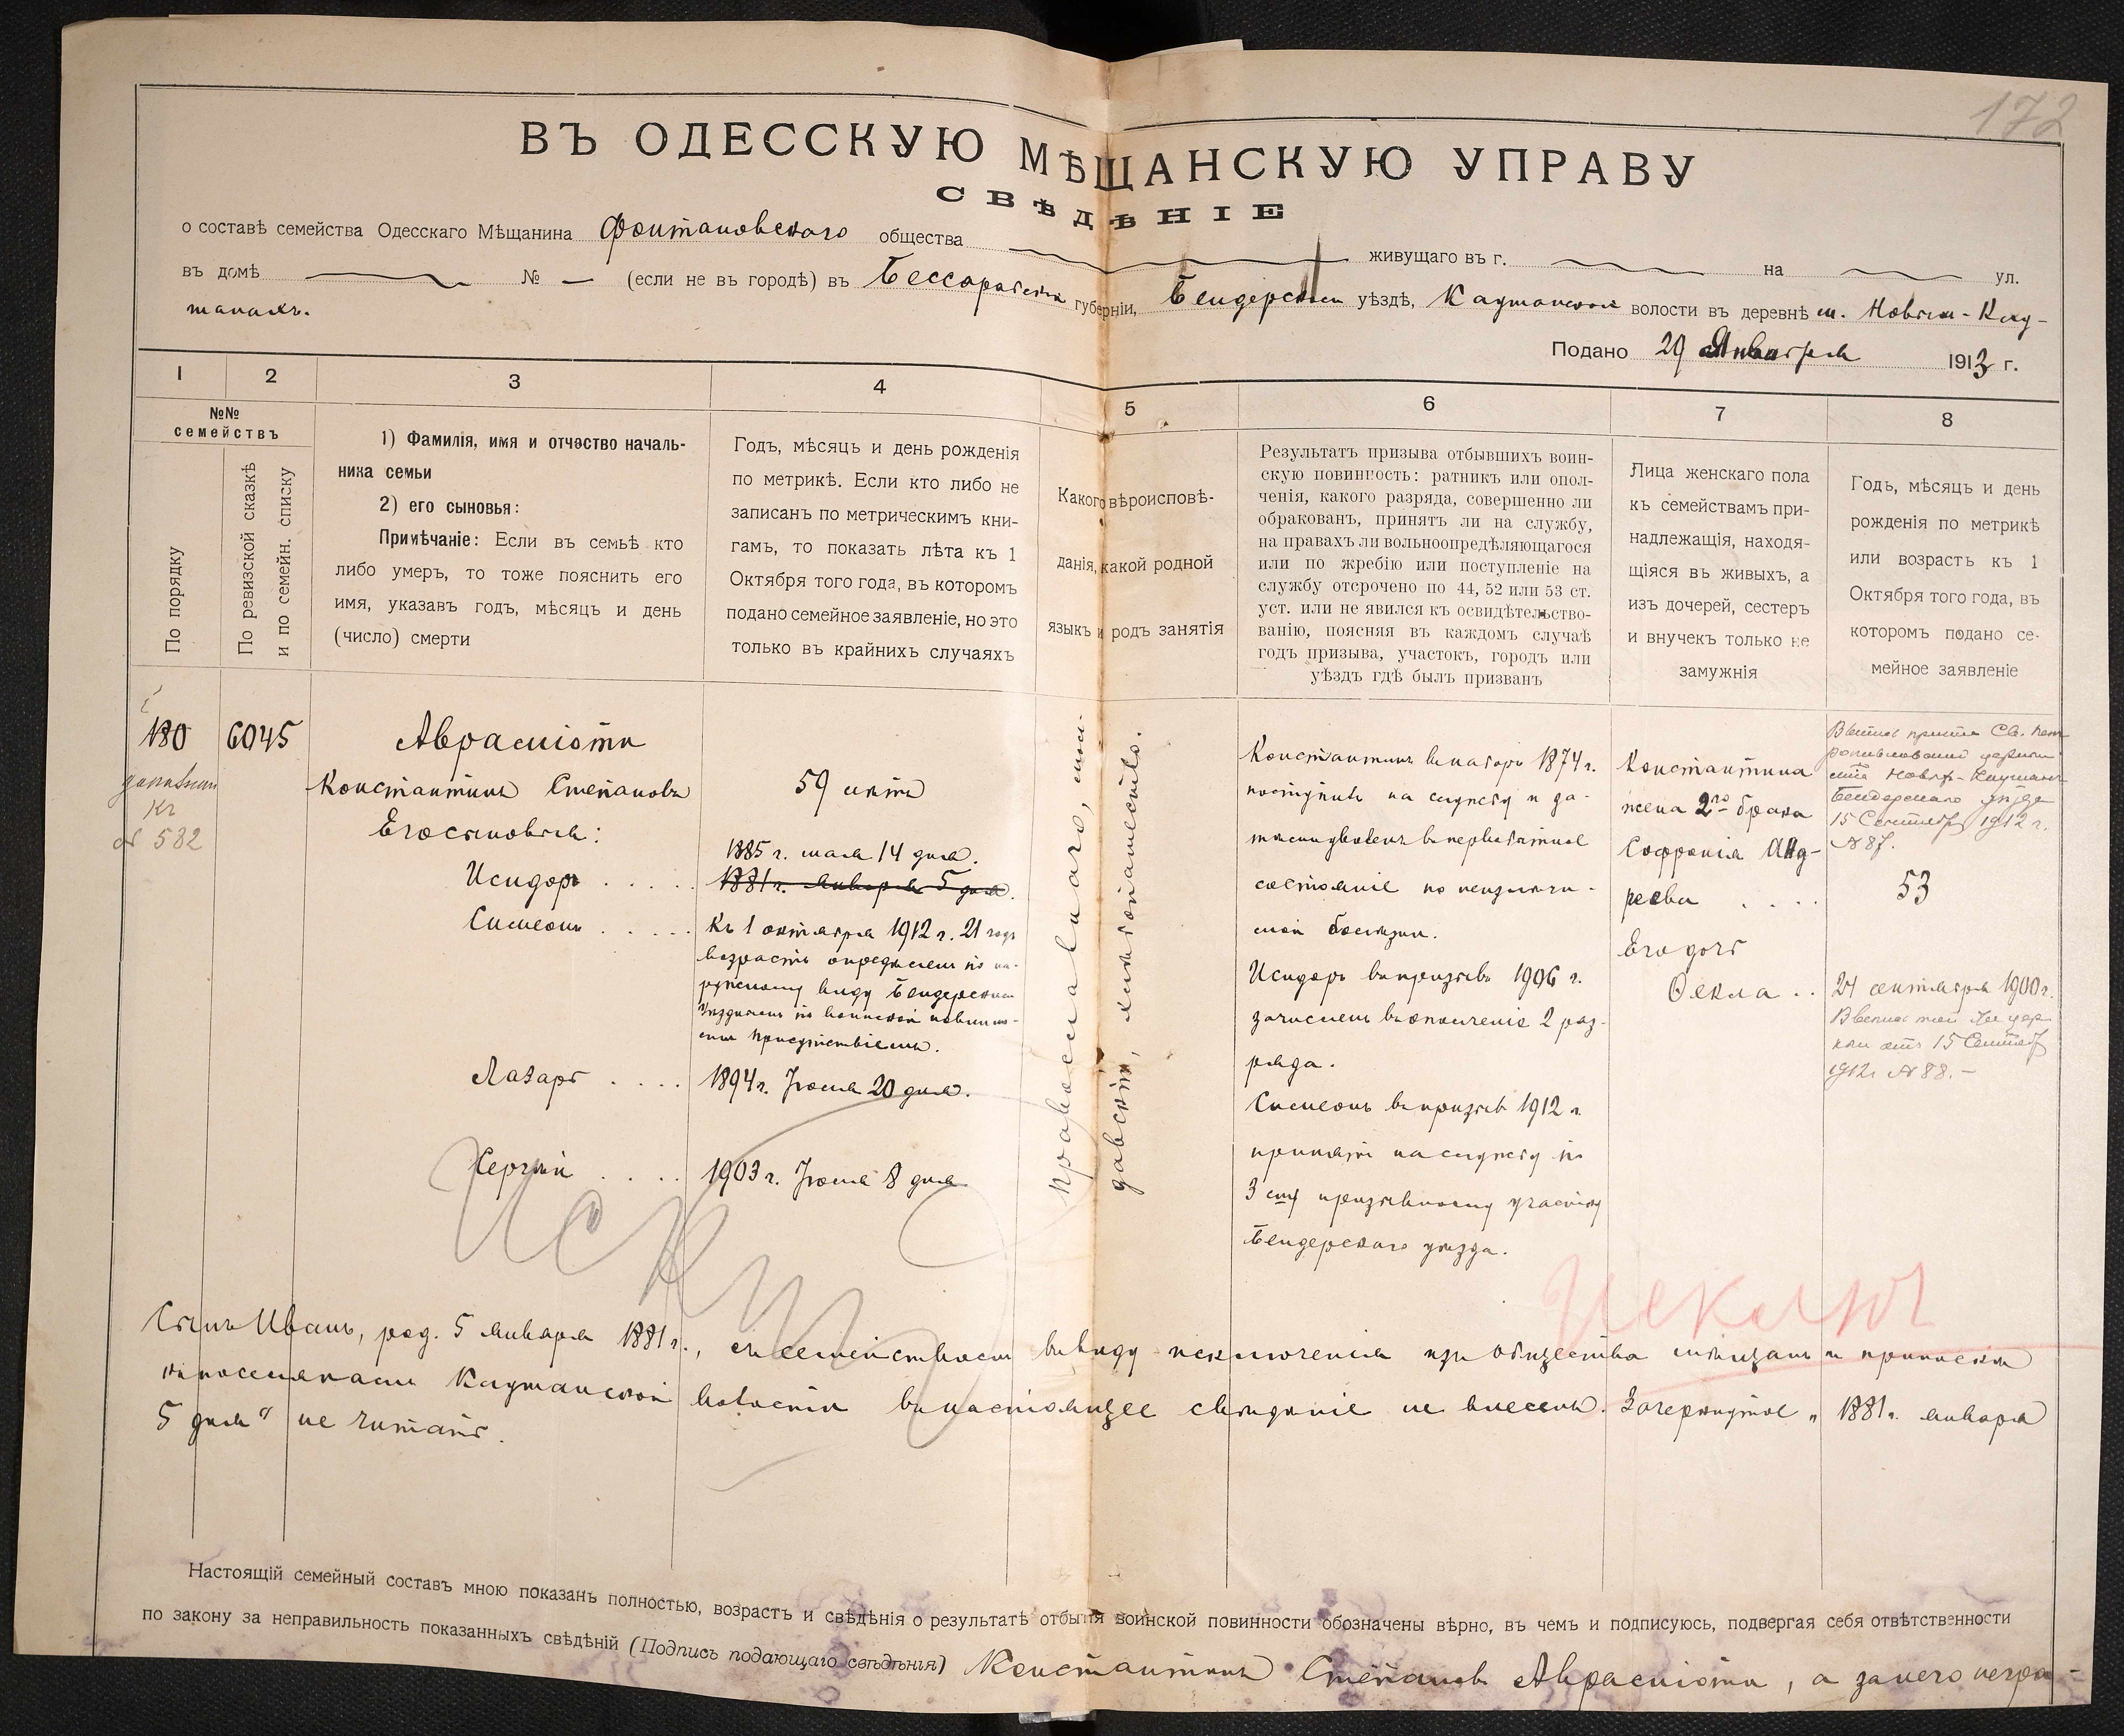 172
ВЪ ОДЕССКУЮ МѢЩАНСКУЮ УПРАВУ
СВѢДѢНІЕ
о составѣ семейства Одесскаго Мѣщанина Фонтановскаго общества живущаго въ г. на ул.
въ домѣ № — (если не въ городѣ) въ Бессарабской губерніи, Бендерскомъ уѣздѣ, Каушанской волости въ деревнѣ м. Новыхъ-Кау-
шанахъ.
Подано 29 Января 1913 г.
1 2 3 4 5 6 7 8
№№ семействъ
По порядку
По ревизской сказкѣ
и по семейн. списку
1) Фамилія, имя и отчество началь-
ника семьи
2) его сыновья:
Примѣчаніе: Если въ семьѣ кто
либо умеръ, то тоже пояснить его
имя, указавъ годъ, мѣсяцъ и день
(число) смерти
Годъ, мѣсяцъ и день рожденія
по метрикѣ. Если кто либо не
записанъ по метрическимъ кни-
гамъ, то показать лѣта къ 1
Октября того года, въ которомъ
подано семейное заявленіе, но это
только въ крайнихъ случаяхъ
Какого вѣроисповѣ-
данія, какой родной
языкъ и родъ занятія
Результатъ призыва отбывшихъ воин-
скую повинность: ратникъ или опол-
ченія, какого разряда, совершенно ли
обракованъ, принятъ ли на службу,
на правахъ ли вольноопредѣляющагося
или по жребію или поступленіе на
службу отсрочено по 44, 52 или 53 ст.
уст. или не явился къ освидѣтельство-
ванію, поясняя въ каждомъ случаѣ
годъ призыва, участокъ, городъ или
уѣздъ гдѣ былъ призванъ
Лица женскаго пола
къ семействамъ при-
надлежащія, находя-
щіяся въ живыхъ, а
изъ дочерей, сестеръ
и внучекъ только не
замужнія
Годъ, мѣсяцъ и день
рожденія по метрикѣ
или возрастъ къ 1
Октября того года, въ
которомъ подано се-
мейное заявленіе
180
къ
№ 582
6045
Аврамiоти
Константинъ Степановъ
Его сыновья:
Исидоръ . . . . .
Симеонъ . . . . .
Лазарь . . . .
Сергѣй . . . .
59 лѣтъ
1885 г. мая 14 дня.
1881 г. января 5 дня.
Къ 1 октября 1912 г. 21 годъ
возрастъ опредѣленъ по на-
ружному виду Бендерскимъ
Уѣзднымъ по воинской повинно-
сти присутствіемъ.
1894 г. Іюля 20 дня.
1903 г. Іюля 8 дня.
православнаго, мол-
давскій, хлѣбопашество.
Константинъ въ наборъ 1874 г.
поступилъ на службу и за-
тѣмъ уволенъ въ первобытное
состояніе по неизлѣчи-
мой болѣзни.
Исидоръ въ призывъ 1906 г.
зачисленъ въ ополченіе 2 раз-
ряда.
Симеонъ въ призывъ 1912 г.
принятъ на службу по
3 ему призывному участку
Бендерскаго уѣзда.
Константина
жена 2го брака
Софронія Анд-
реева . . . .
Его дочь
Ѳекла . .
15 Сентября 1912 г.
№ 87.
53
24 сентября 1900 г.
15 Сентяб.
1912 г. № 88. –
Исключ
Исключ
Сынъ Иванъ, род. 5 января 1881 г., съ семействомъ въ виду исключенія изъ общества мѣщанъ и приписки
къ поселянамъ Каушанской волости въ настоящее свѣдѣніе не внесенъ. Зачеркнутое „ 1881 г. января
5 дня“ не читать.
Настоящій семейный составъ мною показанъ полностью, возрастъ и свѣдѣнія о результатѣ отбытія воинской повинности обозначены вѣрно, въ чемъ и подписуюсь, подвергая себя отвѣтственности
по закону за неправильность показанныхъ свѣдѣній (Подпись подающаго свѣдѣнія) Константинъ Степановъ Аврамiоти, а за него негра-